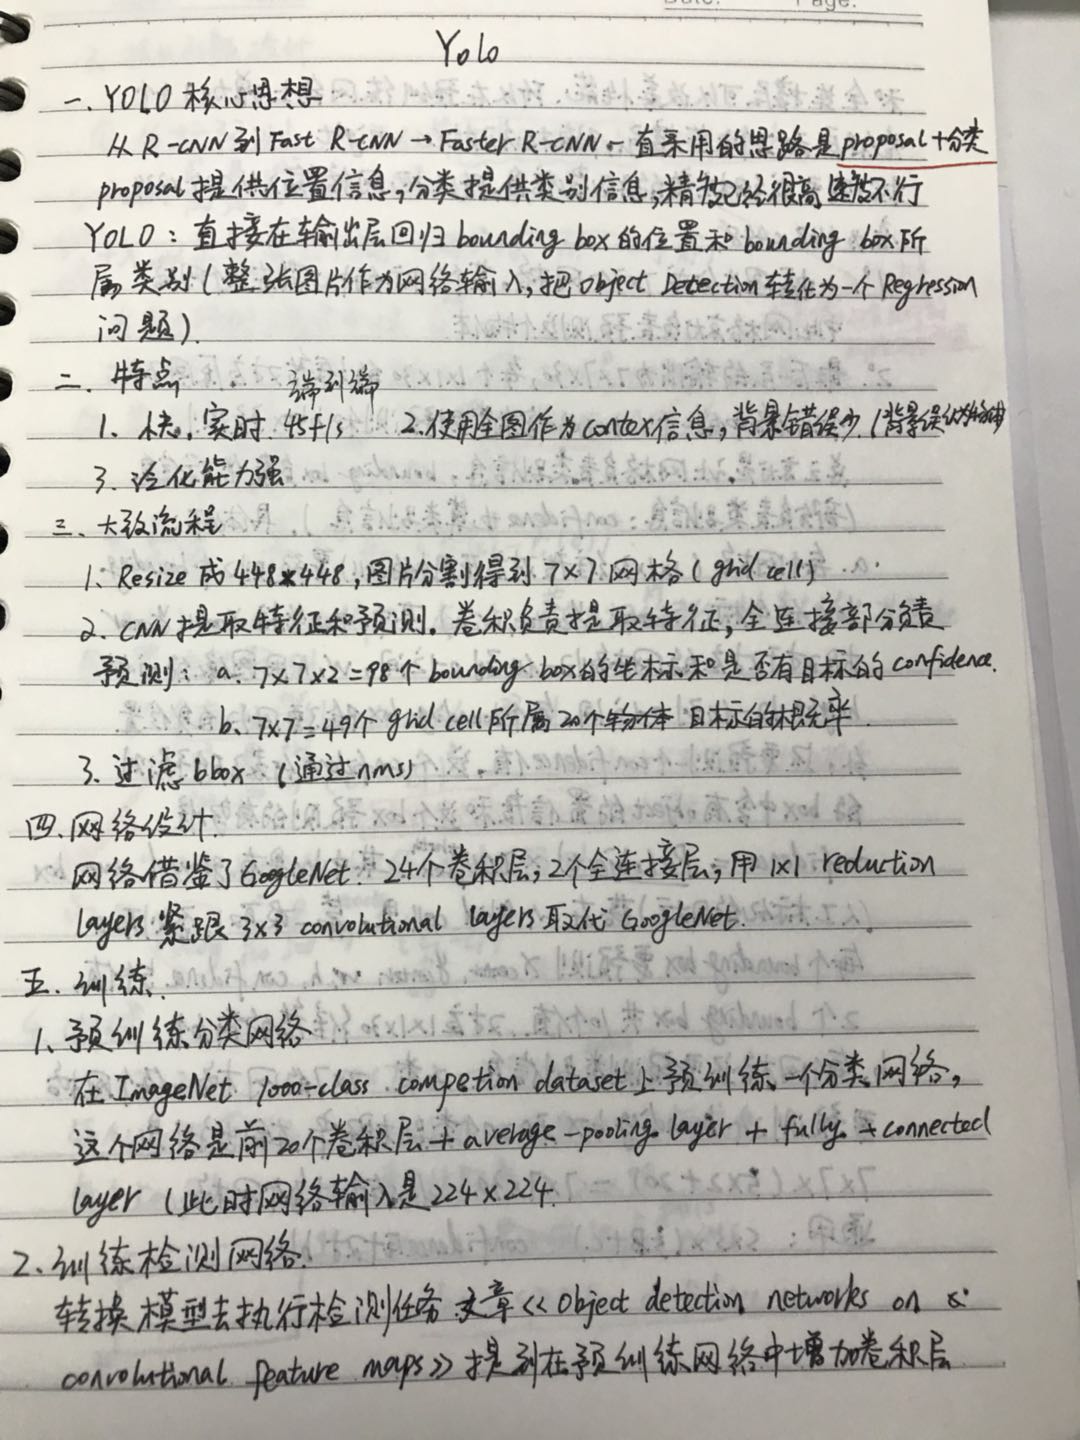 Date: Page:
Yolo
一、YOLO 核心思想
从 R-CNN 到 Fast R-CNN → Faster R-CNN 一直采用的思路是 proposal + 分类
proposal 提供位置信息，分类提供类别信息，精度已经很高 速度不行
YOLO：直接在输出层回归 bounding box 的位置和 bounding box 所
属类别（整张图片作为网络输入，把 Object Detection 转化为一个 Regression
问题）.
二、特点 端到端
1、快，实时. 45f/s 2、使用全图作为 contex 信息，背景错误少.（背景误认为物体）
3、泛化能力强
三、大致流程
1、Resize 成 448×448，图片分割得到 7×7 网格（grid cell）
2、CNN 提取特征和预测。卷积负责提取特征，全连接部分负责
预测：a、7×7×2=98个 bounding box 的坐标和是否有目标的 confidence.
b、7×7=49个 grid cell 所属 20个物体 目标的概率.
3、过滤 bbox（通过nms）
四、网络设计.
网络借鉴了 GoogleNet. 24个卷积层，2个全连接层，用 1×1 reduction
layers 紧跟 3×3 convolutional layers 取代 GoogleNet.
五、训练.
1、预训练分类网络
在 ImageNet 1000-class compettion dataset 上预训练一个分类网络，
这个网络是前20个卷积层 + average-pooling layer + fully-connected
layer（此时网络输入是 224×224.
2、训练检测网络.
转换模型去执行检测任务 文章<< Object detection networks on
convolutional feature maps>> 提到在预训练网络中增加卷积层